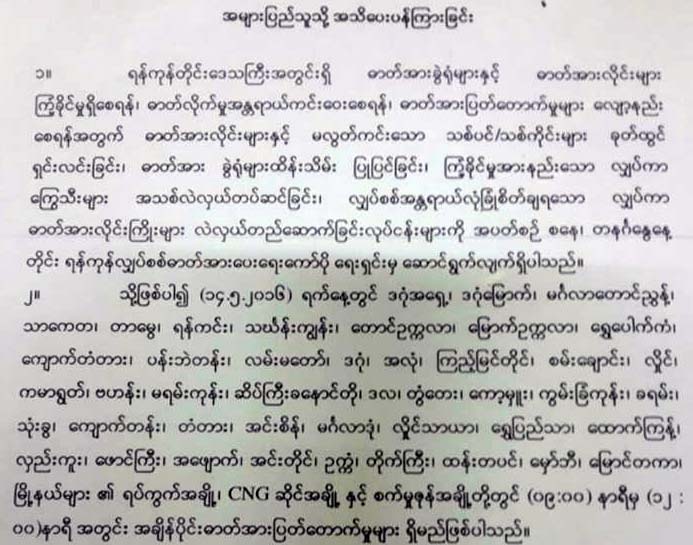 အများပြည်သူသို့ အသိပေးပန်ကြားခြင်း
၁။ ရန်ကုန်တိုင်းဒေသကြီးအတွင်းရှိ ဓာတ်အားခွဲရုံများနှင့် ဓာတ်အားလိုင်းများ
ကြံ့ခိုင်မှုရှိစေရန်၊ ဓာတ်လိုက်မှုအန္တရာယ်ကင်းဝေးစေရန်၊ ဓာတ်အားပြတ်တောက်မှုများ လျော့နည်း
စေရန်အတွက် ဓာတ်အားလိုင်းများနှင့် မလွတ်ကင်းသော သစ်ပင်/သစ်ကိုင်းများ ခုတ်ထွင်
ရှင်းလင်းခြင်း၊ ဓာတ်အား ခွဲရုံများထိန်းသိမ်း ပြုပြင်ခြင်း၊ ကြံ့ခိုင်မှုအားနည်းသော လျှပ်ကာ
ကြွေသီးများ အသစ်လဲလှယ်တပ်ဆင်ခြင်း၊ လျှပ်စစ်အန္တရာယ်လုံခြုံစိတ်ချရသော လျှပ်ကာ
ဓာတ်အားလိုင်းကြိုးများ လဲလှယ်တည်ဆောက်ခြင်းလုပ်ငန်းများကို အပတ်စဉ် စနေ၊ တနင်္ဂနွေနေ့
တိုင်း ရန်ကုန်လျှပ်စစ်ဓာတ်အားပေးရေးကော်ပိုရေးရှင်းမှ ဆောင်ရွက်လျက်ရှိပါသည်။
၂။ သို့ဖြစ်ပါ၍ (၁၄.၅.၂၀၁၆) ရက်နေ့တွင် ဒဂုံအရှေ့၊ ဒဂုံမြောက်၊ မင်္ဂလာတောင်ညွန့်၊
သာကေတ၊ တာမွေ၊ ရန်ကင်း၊ သင်္ဃန်းကျွန်း၊ တောင်ဥက္ကလာ၊ မြောက်ဥက္ကလာ၊ ရွှေပေါက်ကံ၊
ကျောက်တံတား၊ ပန်းဘဲတန်း၊ လမ်းမတော်၊ ဒဂုံ၊ အလုံ၊ ကြည့်မြင်တိုင်၊ စမ်းချောင်း၊ လှိုင်၊
ကမာရွတ်၊ ဗဟန်း၊ မရမ်းကုန်း၊ ဆိပ်ကြီးခနောင်တို၊ ဒလ၊ တွံတေး၊ ကော့မှူး၊ ကွမ်းခြံကုန်း၊ ခရမ်း၊
သုံးခွ၊ ကျောက်တန်း၊ တံတား၊ အင်းစိန်၊ မင်္ဂလာဒုံ၊ လှိုင်သာယာ၊ ရွှေပြည်သာ၊ ထောက်ကြန့်၊
လှည်းကူး၊ ဖောင်ကြီး၊ အဖျောက်၊ အင်းတိုင်၊ ဥက္ကံ၊ တိုက်ကြီး၊ ထန်းတပင်၊ မှော်ဘီ၊ မြောင်တကာ၊
မြို့နယ်များ ၏ ရပ်ကွက်အချို့၊ CNG ဆိုင်အချို့ နှင့် စက်မှုဇုန်အချို့တို့တွင် (၀၉:၀၀) နာရီမှ (၁၂ :
၀၀)နာရီ အတွင်း အချိန်ပိုင်းဓာတ်အားပြတ်တောက်မှုများ ရှိမည်ဖြစ်ပါသည်။